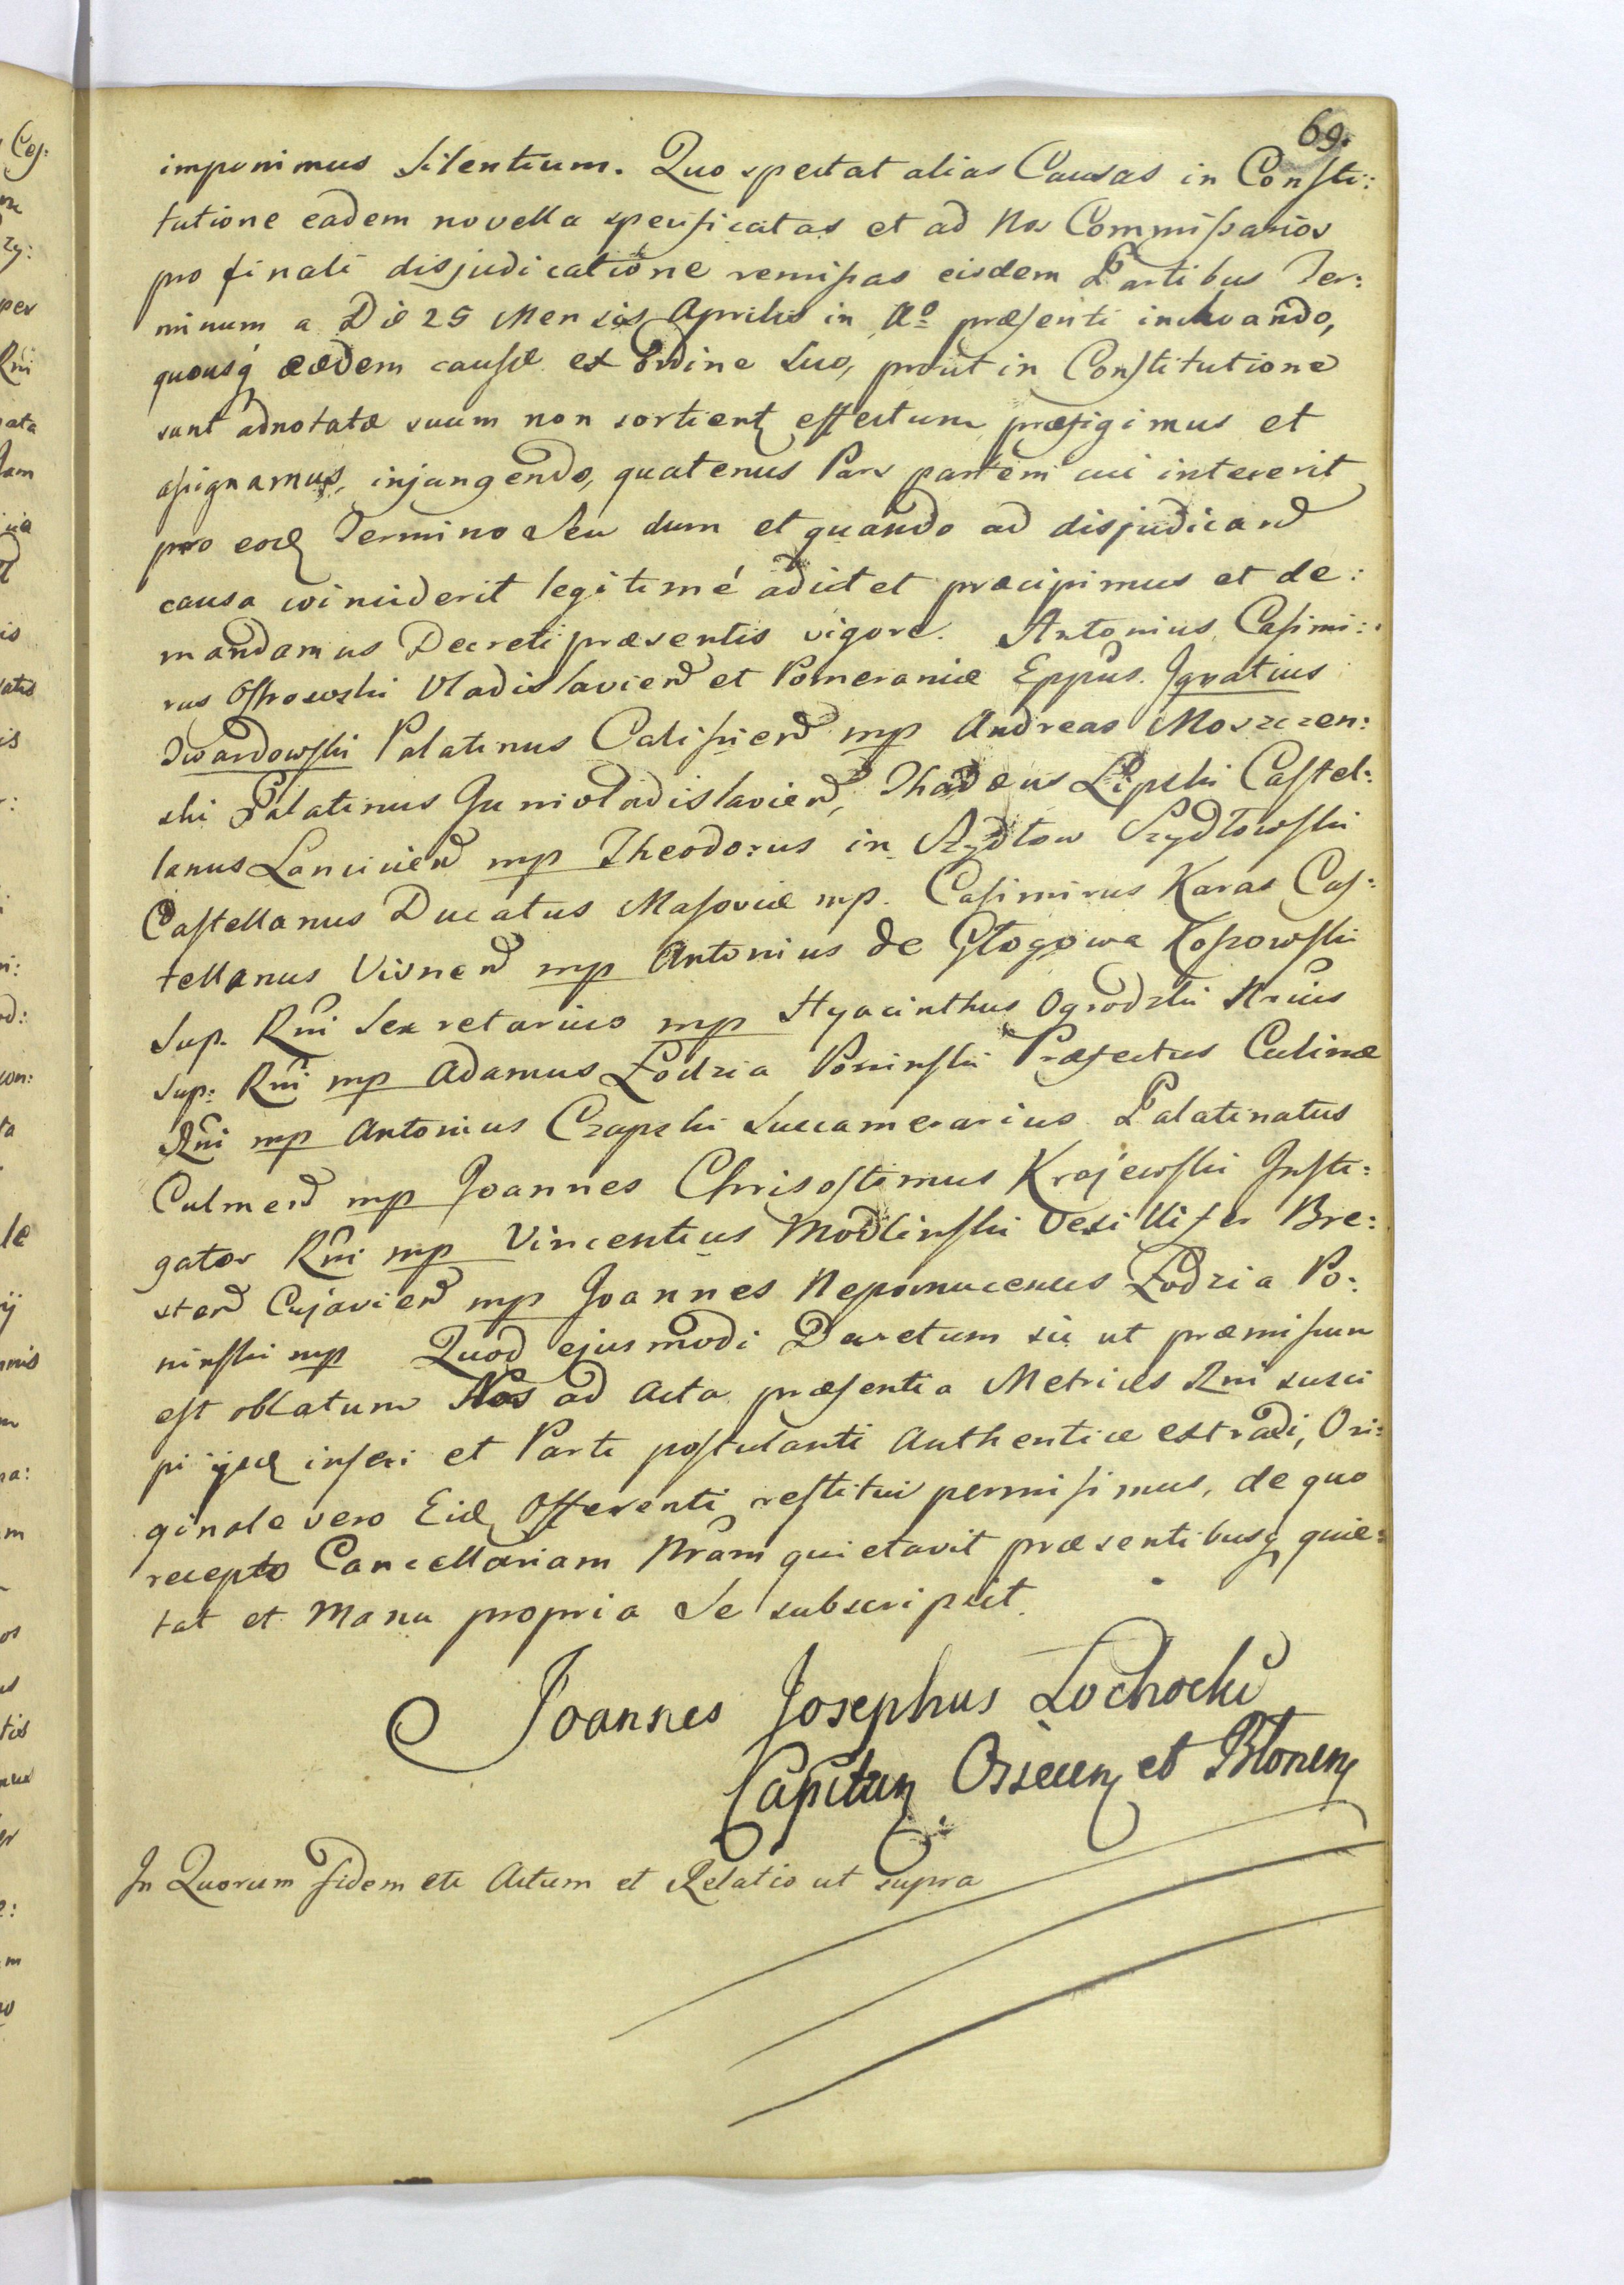 69.
imponimus Silentium. Quo spectat alias Causas in Consti:
tutione eadem novella specificatas et ad Nos Commissarios
pro finali disjudicatione remissas eisdem Partibus Ter:
minum a Die 25 Mensis Aprilis in Aº præsenti inchoando,
quousq eædem causæ ex Ordine Suo, prout in Constitutione
sunt adnotatæ suum non sortient effectum præfigimus et
assignamus, injungendo, quatenus Pars partem cui intererit
pro eod Termino Seu dum et quando ad disjudicand
causa coinciderit legitimé adcitet præcipimus et de:
mandamus Decreti præsentis vigore. Antonius Casimi:
rus Ostrowski Vladislavien et Pomeraniæ Eppus. Ignatius
Twardowski Palatinus Calissien mp Andreas Moszczen:
ski Palatinus Junivladislavien, Thadæus Lipski Castel:
lanus Lancicien mp Theodorus in Szydłow Szydłowski
Castellanus Ducatus Masoviæ mp. Casimirus Karas Cas:
tellanus Visnen mp Antonius de Głogowa Kossowski
Sup. Rni Secretarius mp Hyacinthus Ogrodzki Nrius
Sup: Rni mp Adamus Łodzia Poninski Præfectus Culinæ
Rni mp Antonius Czapski Succamerarius Palatinatus
Culmen mp Joannes Chrisostimus Krajewski Insti:
gator Rni mp Vincentius Modlinski Vexillifer Bre:
sten Cujavien mp Joannes Nepomucenus Łodzia Po:
ninski mp Quod ejusmodi Decretum sic ut præmissum
est oblatum Nos ad Acta præsentia Metrices Rni susci
pi ijsd inseri et Parti postulanti Authentice extradi, Ori:
ginale vero Eid Offerenti restitui permisimus, de quo
recepto Cancellariam Nram quietavit præsentibusq quie:
tat et Manu propria Se subscripsit.
Joannes Josephus Łochocki
Capitan Ossecen et Blonen
In Quorum fidem etc Actum et Relatio ut supra